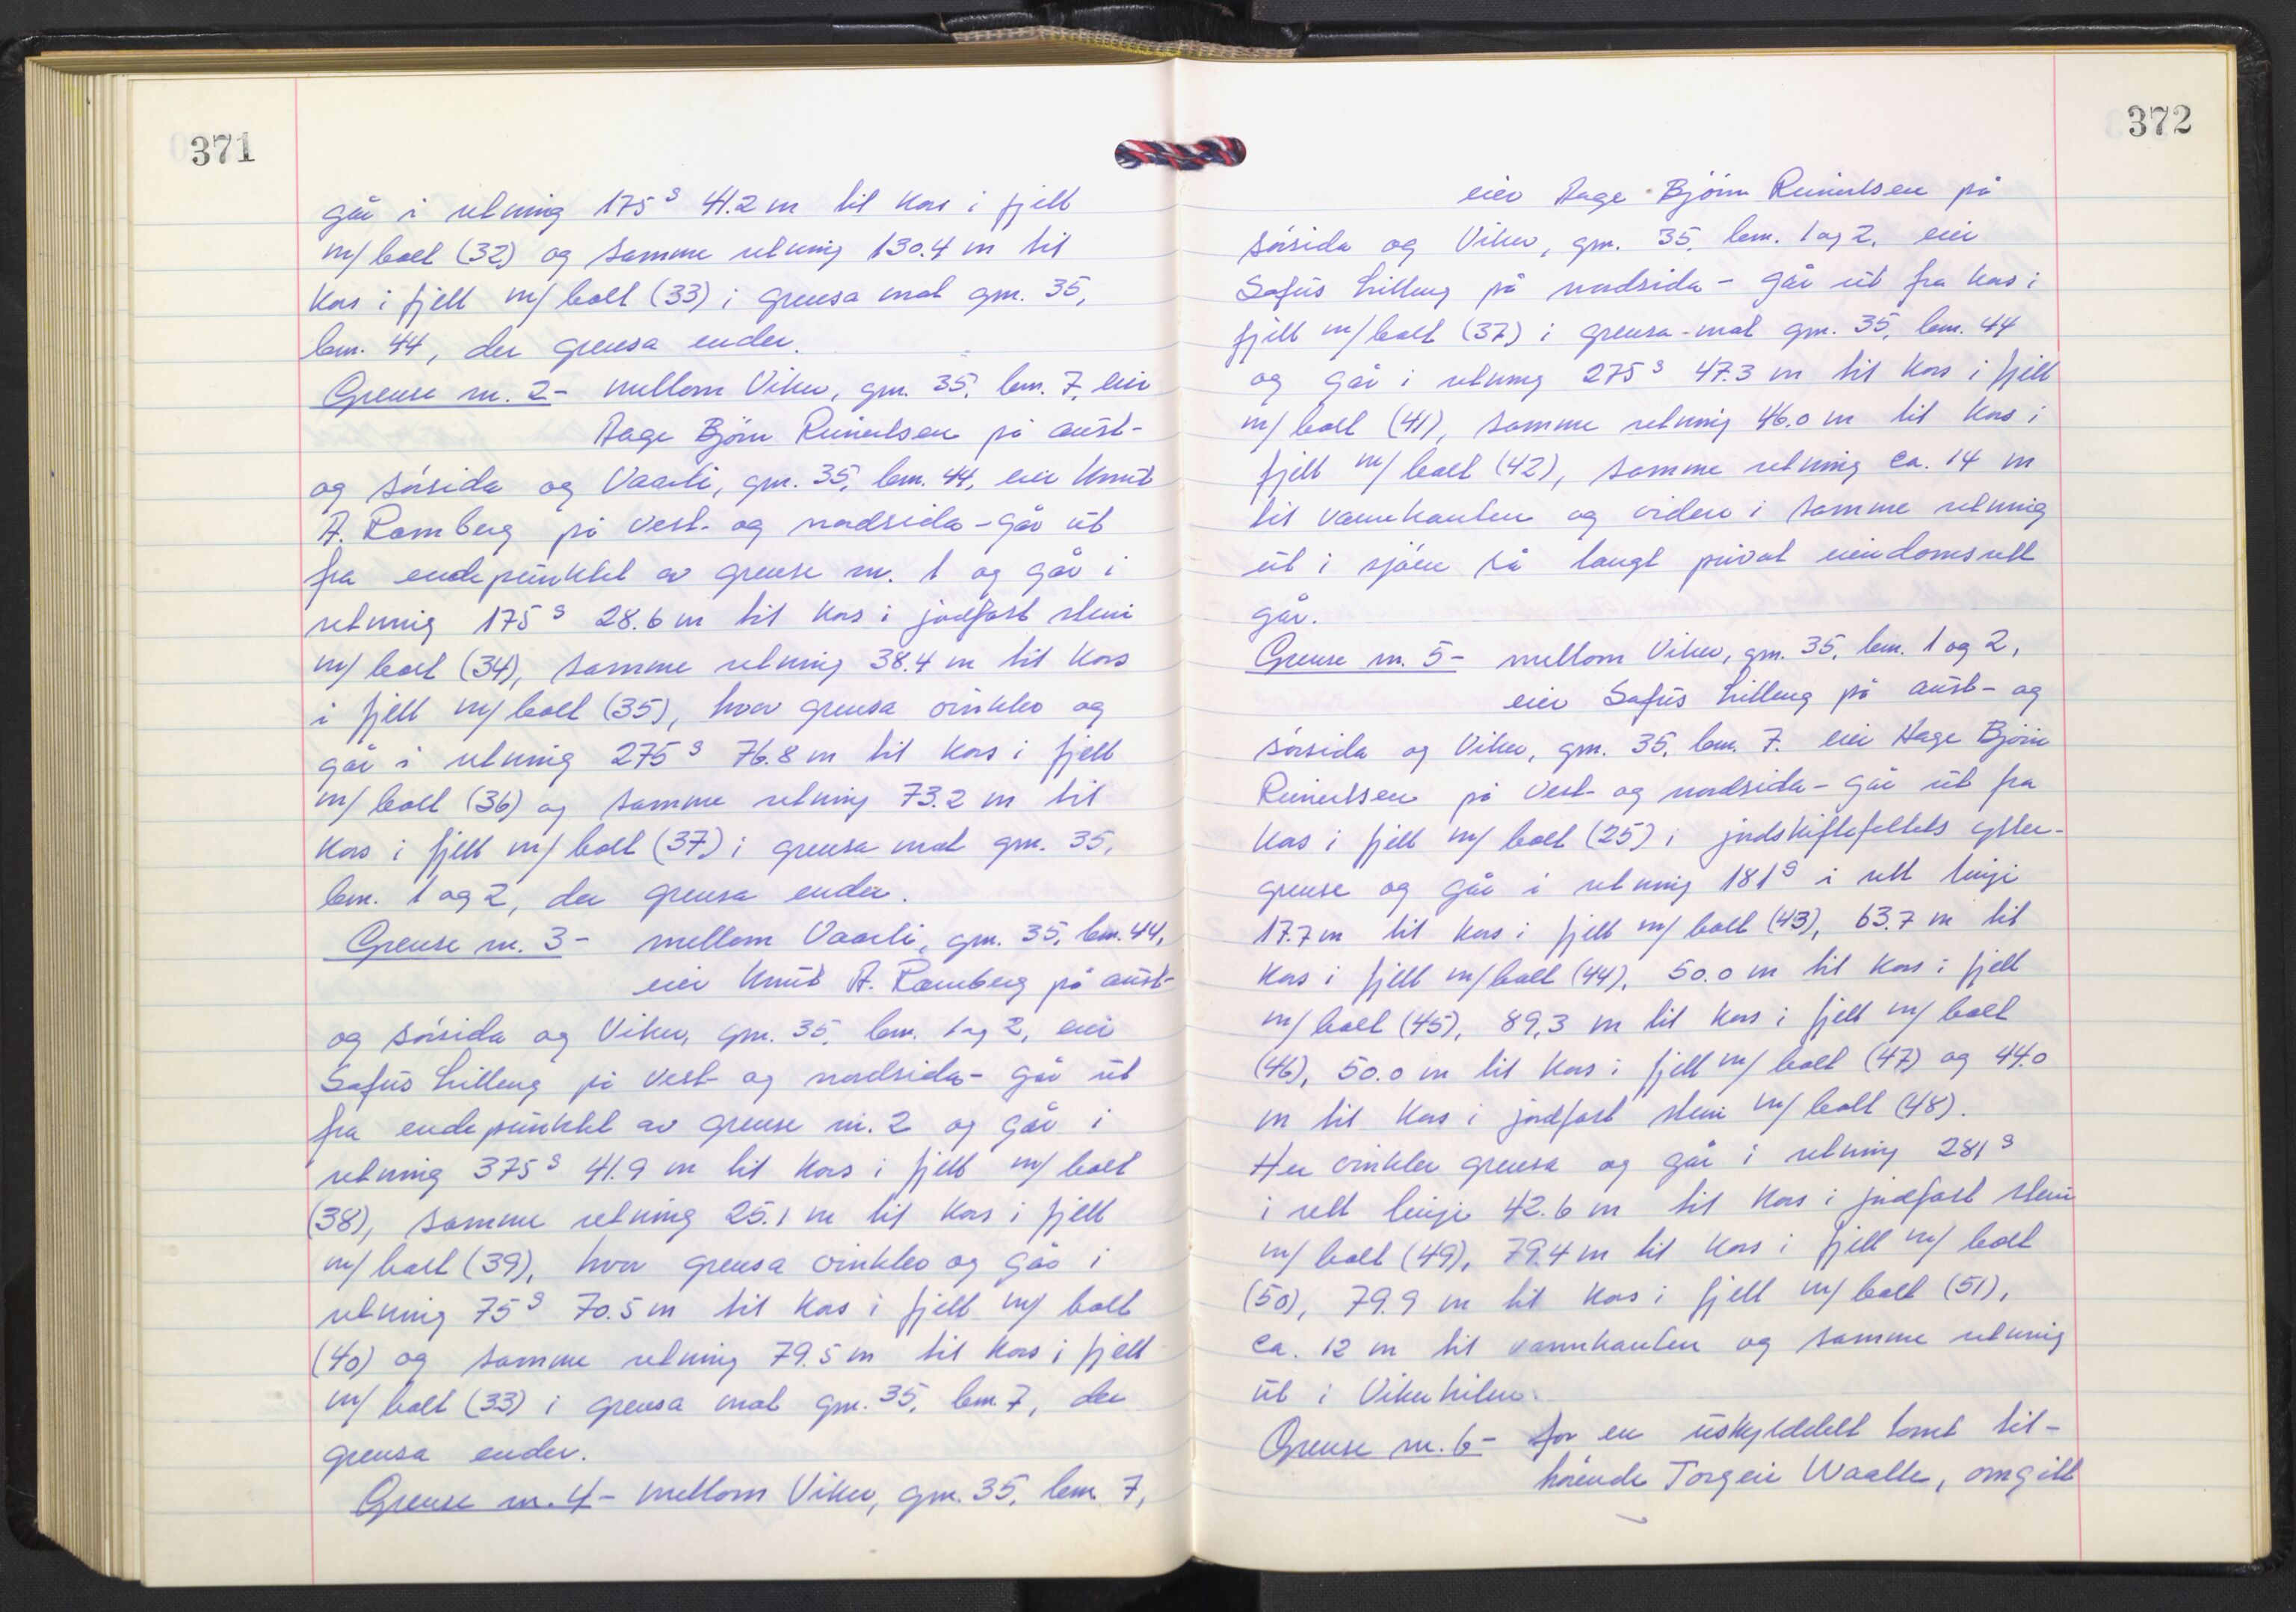 371
går i retning 175g 41.2 m til kors i fjell
m/ bolt (32) og samme retning 130.4 m til
kors i fjell m/ bolt (33) i grensa mot gnr. 35,
bnr. 44, der grensa ender.
Grense nr. 2 - mellom Viken, gnr. 35, bnr. 7, eier
Aage Bjørn Reinertsen på aust-
og sørsida og Vaarli, gnr. 35, bnr. 44, eier Knut
A. Ramberg på vest- og nordsida - går ut
fra endepunktet av grense nr. 1 og går i
retning 175g 28.6 m til kors i jordfast stein
m/ bolt (34), samme retning 38.4 m til kors
i fjell m/ bolt (35), hvor grensa vinkler og
går i retning 275g 76.8 m til kors i fjell
m/ bolt (36) og samme retning 73.2 m til
kors i fjell m/ bolt (37) i grensa mot gnr. 35,
bnr. 1 og 2, der grensa ender.
Grense nr. 3 - mellom Vaarli, gnr. 35, bnr. 44,
eier Knut A. Ramberg på aust-
og sørsida og Viken, gnr. 35, bnr. 1 og 2, eier
Safus Lilleng på vest- og nordsida - går ut
fra endepunktet av grense nr. 2 og går i
retning 375g 41.9 m til kors i fjell m/ bolt
(38), samme retning 25.1 m til kors i fjell
m/ bolt (39), hvor grensa vinkler og går i
retning 75g 70.5 m til kors i fjell m/ bolt
(40) og samme retning 79.5 m til kors i fjell
m/ bolt (33) i grensa mot gnr. 35, bnr. 7, der
grensa ender.
Grense nr. 4 - mellom Viken, gnr. 35, bnr. 7,
372
eier Aage Bjørn Reinertsen på
sørsida og Viken, gnr. 35, bnr. 1 og 2, eier
Safus Lilleng på nordsida - går ut fra kors i
fjell m/ bolt (37) i grensa mot gnr. 35, bnr. 44
og går i retning 275g 47.3 m til kors i fjell
m/ bolt (41), samme retning 46.0 m til kors i
fjell m/ bolt (42), samme retning ca. 14 m
til vannkanten og videre i samme retning
ut i sjøen så langt privat eiendomsrett
går.
Grense nr. 5 - mellom Viken, gnr. 35, bnr. 1 og 2,
eier Safus Lilleng på aust- og
sørsida og Viken, gnr. 35, bnr. 7. eier Aage Bjørn
Reinertsen på vest- og nordsida - går ut fra
kors i fjell m/ bolt (25) i jordskiftefeltets ytter-
grense og går i retning 181g i rett linje
17.7 m til kors i fjell m/ bolt (43), 63.7 m til
kors i fjell m/ bolt (44), 50.0 m til kors i fjell
m/ bolt (45), 89,3 m til kors i fjell m/ bolt
(46), 50.0 m til kors i fjell m/ bolt (47) og 44.0
m til kors i jordfast stein m/ bolt (48).
Her vinkler grensa og går i retning 281g
i rett linje 42.6 m til kors i jordfast stein
m/ bolt (49), 79.4 m til kors i fjell m/ bolt
(50), 79.9 m til kors i fjell m/ bolt (51),
ca. 12 m til vannkanten og samme retning
ut i Vikerkilen.
Grense nr. 6 - for en uskylddelt tomt til-
hørende Torgeir Waalle, omgitt